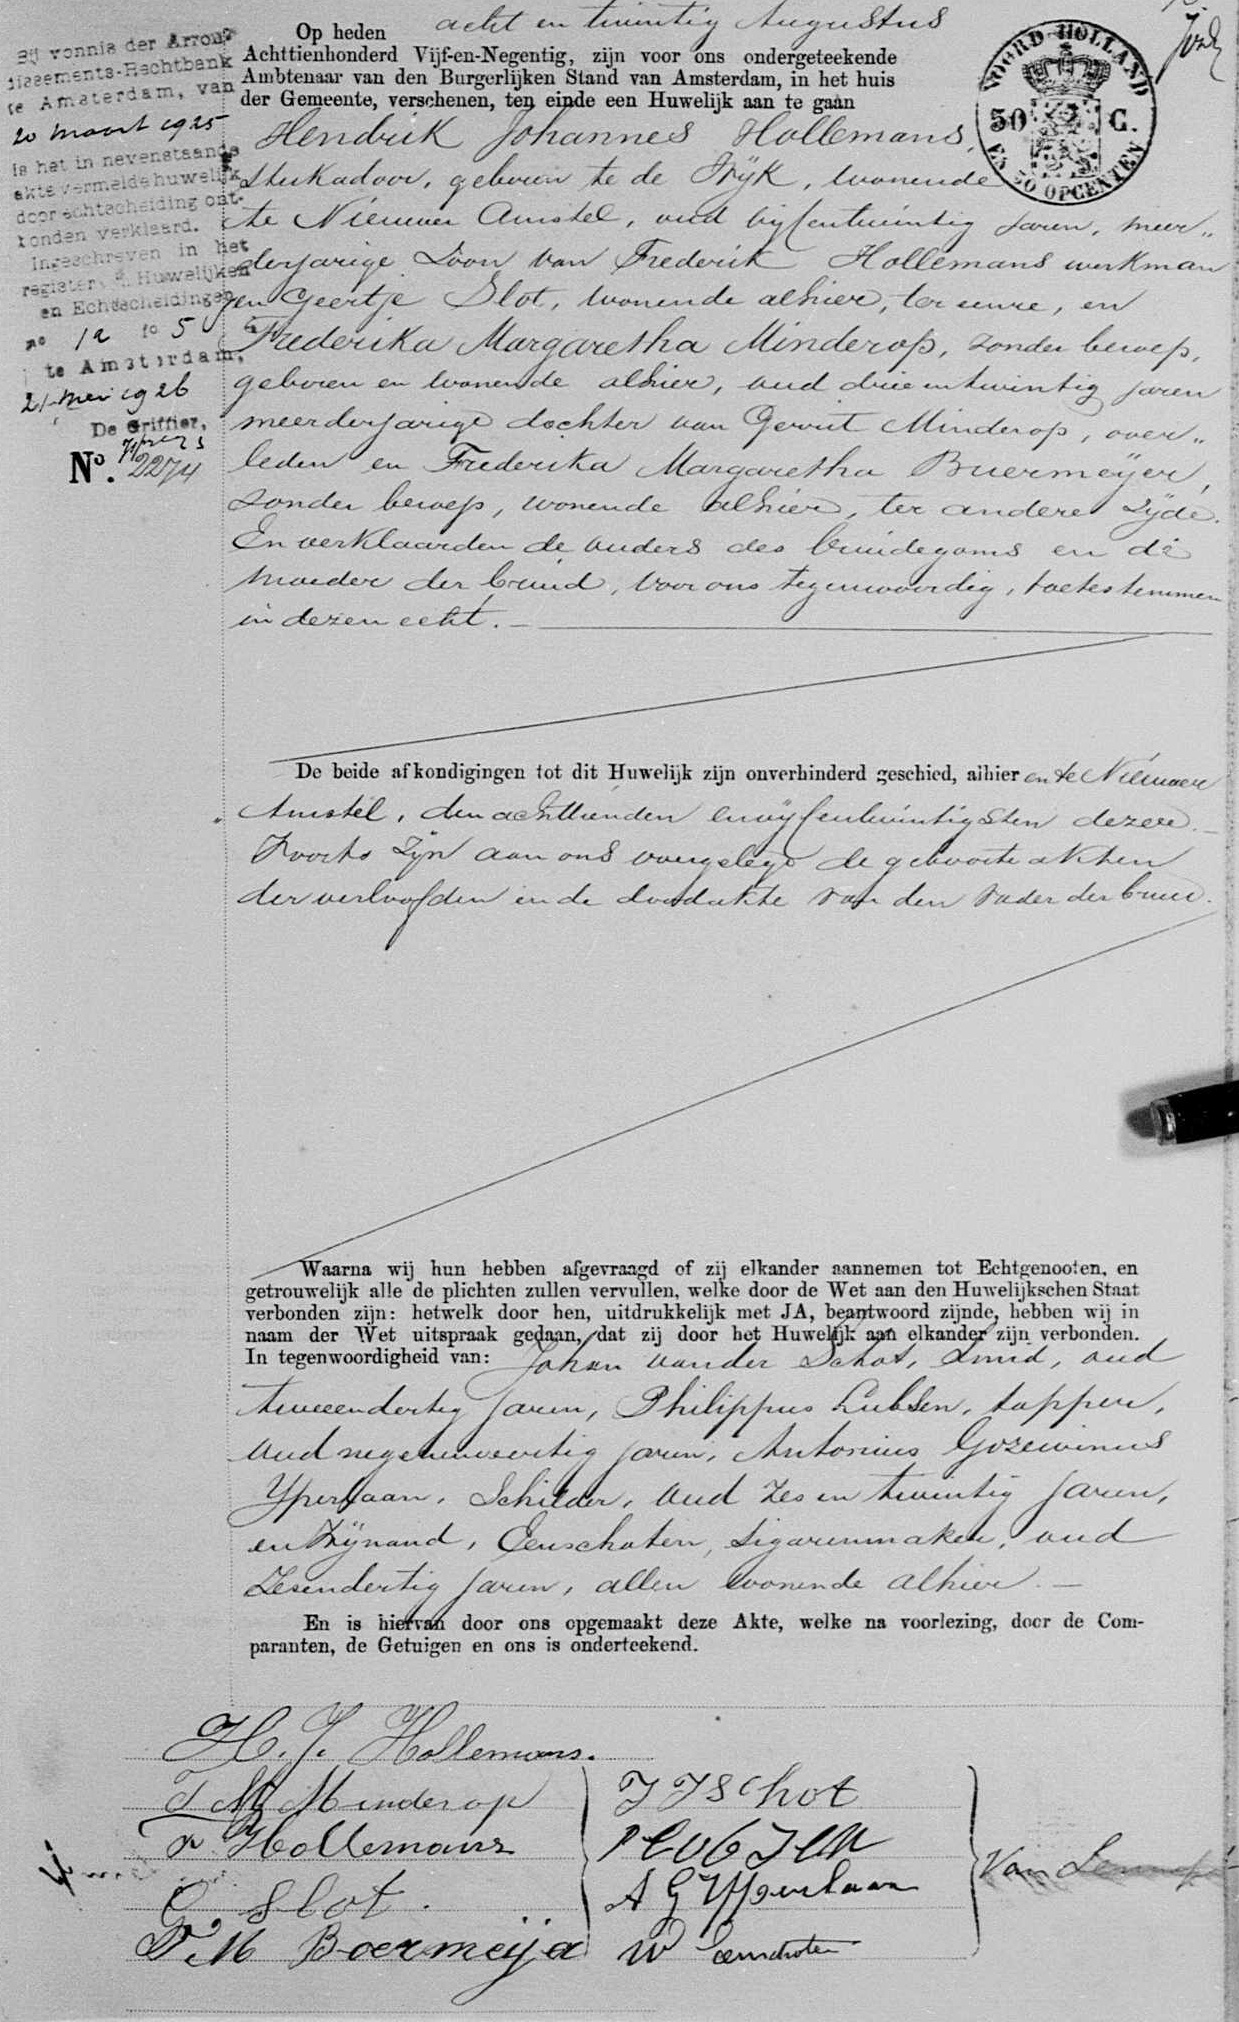 Op heden acht en twintig Augustus
Achttienhonderd Vijf-en-Negentig, zijn voor ons ondergeteekende
Ambtenaar van den Burgerlijken Stand van Amsterdam, in het huis
der Gemeente, verschenen, ten einde een Huwelijk aan te gaan
Hendrik Johannes Hollemans,
Stukadoor, geboren te de Rijk, wonende
te Nieuwer Amstel, oud vijfentwintig jaren, meer„
derjarige Zoon van Frederik Hollemans werkman
en Geertje Slot, wonende alhier, ter eenre, en
Frederika Margaretha Minderop, zonder beroep,
geboren en wonende alhier, oud drieentwintig jaren
meerderjarige dochter van Gerrit Minderop, over„
leden en Frederika Margaretha Buermeijer,
zonder beroep, wonende alhier, ter andere Zijde.
En verklaarden de ouders des bruidegoms en de
moeder der bruid, voor ons tegenwoordig, toetestemmen
in dezen echt.
De beide afkondigingen tot dit Huwelijk zijn onverhinderd geschied, alhier en te Nieuwer
Amstel, den achttienden en vijfentwintigsten dezer.
Voorts Zijn aan ons overgelegd de geboorte akten
der verloofden en de doodakte van den vader der bruid.
Waarna wij hun hebben afgevraagd of zij elkander aannemen tot Echtgenooten, en
getrouwelijk alle de plichten zullen vervullen, welke door de Wet aan den Huwelijkschen Staat
verbonden zijn: hetwelk door hen, uitdrukkelijk met JA, beantwoord zijnde, hebben wij in
naam der Wet uitspraak gedaan, dat zij door het Huwelijk aan elkander zijn verbonden.
In tegenwoordigheid van: Johan vander Schot, Smid, oud
tweeendertig jaren, Philippus Lubsen, tapper,
oud negenenveertig jaren, Antonius Gozewinus
Yperlaan, Schilder, oud Zes en twintig jaren,
en Wijnand, Eenschoten, Sigarenmaker, oud
Zesendertig jaren, allen wonende alhier.
En is hiervan door ons opgemaakt deze Akte, welke na voorlezing, door de Com-
paranten, de Getuigen en ons is onderteekend.
H. J. Hollemans.
F M Minderop
F Hollemans
G Slot.
F. M Boermeijer
J J Schot
P Lubsen
A G Yperlaan
W Eenschoten
Van Lennep
Bij vonnis der Arron-
dissements-Rechtbank
te Amsterdam, van
20 maart 1925
is het in nevenstaande
akte vermelde huwelijk
door echtscheiding ont-
bonden verklaard.
Ingeschreven in het
register v. Huwelijken
en Echtscheidingen
no 12 fo 5
te Amsterdam,
21 mei 1926
De Griffier,
No. 2274
NOORD-HOLLAND
50 C.
EN 50 OPCENTEN